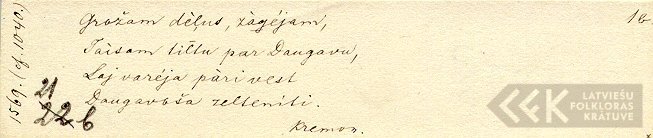 Grožam dēļus, zāģējam,
Taisam tiltu par Daugavu,
Laj varēja pāri vest
Daugavoša zelteniti.
Kremon.
1569.) (cf. 10401)
21
22 b
16.
LATVIEŠU
FOLKLORAS
KRĀTUVE